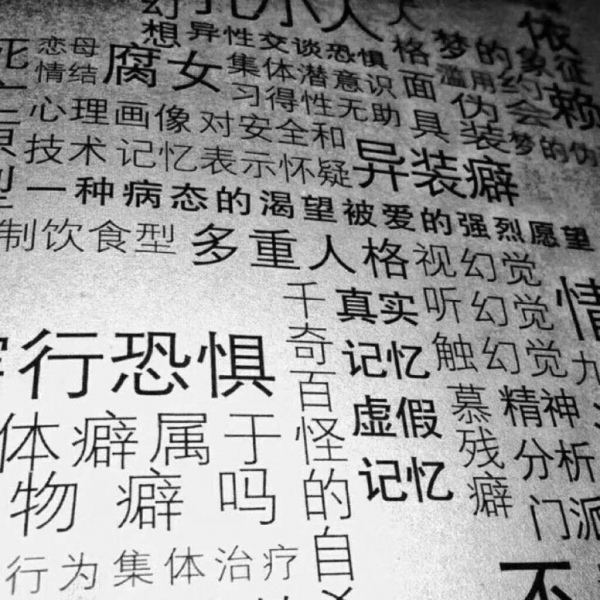 幻想 异性交谈恐惧
格
梦的象征
依赖
恋母情结
腐女
集体潜意识
习得性无助
面具
滥用
约会
伪装
梦的伪
心理画像 对安全和
技术 记忆表示怀疑
异装癖
一种病态的渴望被爱的强烈愿望
制饮食型
多重人格
视幻觉
听幻觉
触幻觉
千奇百怪的自
真实记忆
虚假记忆
行恐惧
慕残癖
精神分析
门派
体癖属于
物癖吗
行为集体治疗